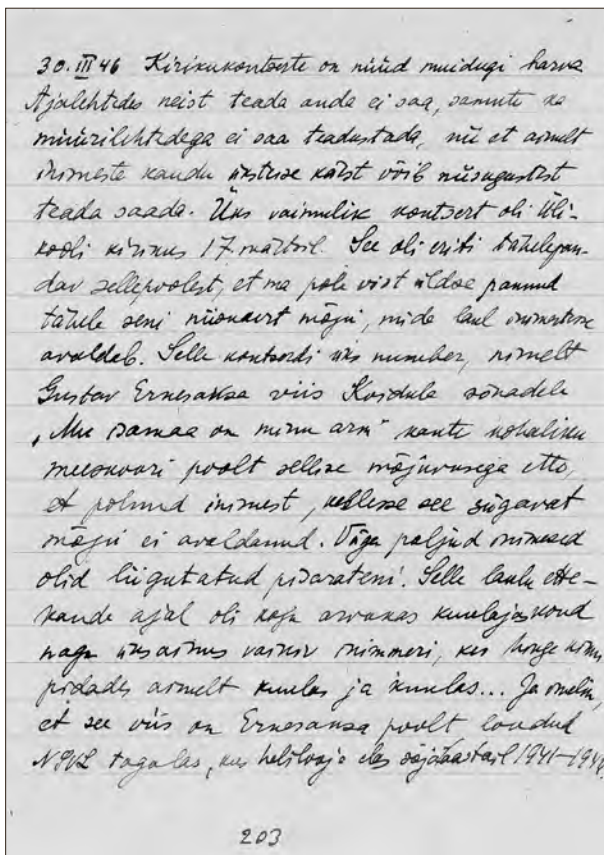 30. III 46 Kirikukontserte on nüüd muidugi harva
Ajalehtedes neist teada anda ei saa, samuti ka
müürilehtedega ei saa teadustada, nii et ainult
inimeste kaudu üksteise käest võib niisugustest
teada saada. Üks vaimulik kontsert oli Üli-
kooli kirikus 17 märtsil. See oli eriti tähelepan-
dav sellepoolest, et ma pole vist üldse pannud
tähele seni niisuurt mõju, mida laul inimestesse
avaldab. Selle kontserdi üks number, nimelt
Gustav Ernesaksa viis Koidula sõnadele
„Mu isamaa on minu arm" kanti kohaliku
meeskoori poolt sellise mõjuvusega ette,
et polnud inimest, kellesse see sügavat
mõju ei avaldanud. Väga paljud inimesed
olid liigutatud pisarateni. Selle laulu ette-
kande ajal oli kogu arvukas kuulajaskond
nagu üksainus vaikiv inimmeri, kes hinge kinni
pidades ainult kuulas ja kuulas... Ja imelik,
et see viis on Ernesaksa poolt loodud
NSVL tagalas, kus helilooja elas sõjaaastail 1941–1944.
203